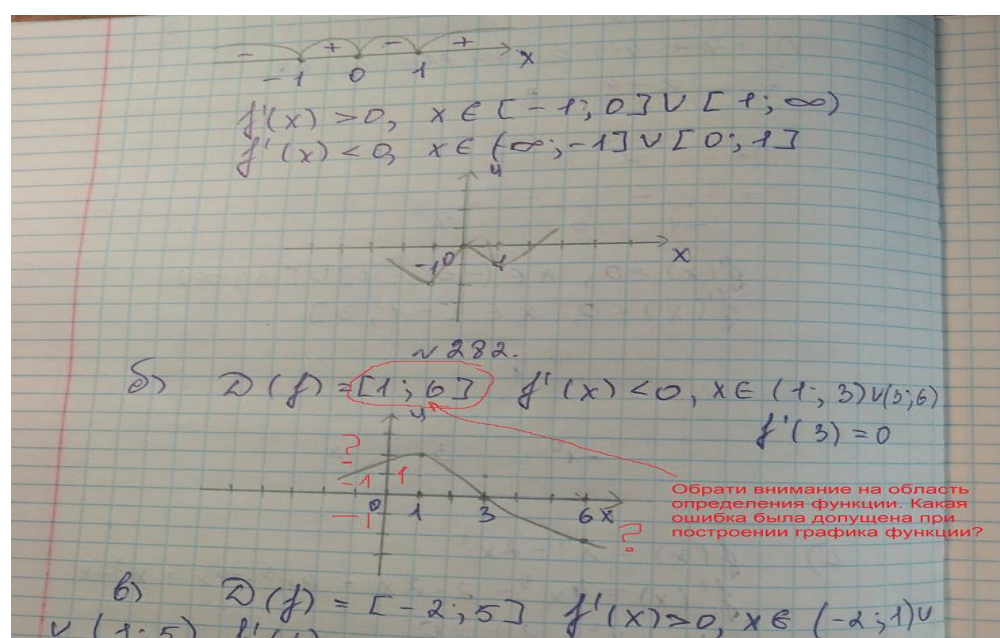 - + - + x
-1 0 1
f'(x) > 0, x ∈ [-1; 0] ∪ [1; ∞)
f'(x) < 0, x ∈ (-∞; -1] ∪ [0; 1]
y
-1 0 1 x
№ 282.
б) D(f) = [1; 6] f'(x) < 0, x ∈ (1; 3) ∪ (3; 6)
f'(3) = 0
y
?
-1 1
0 1 3 6 x
-1
?
Обрати внимание на область
определения функции. Какая
ошибка была допущена при
построении графика функции?
в) D(f) = [-2; 5] f'(x) > 0, x ∈ (-2; 1) ∪
∪ (1; 5)